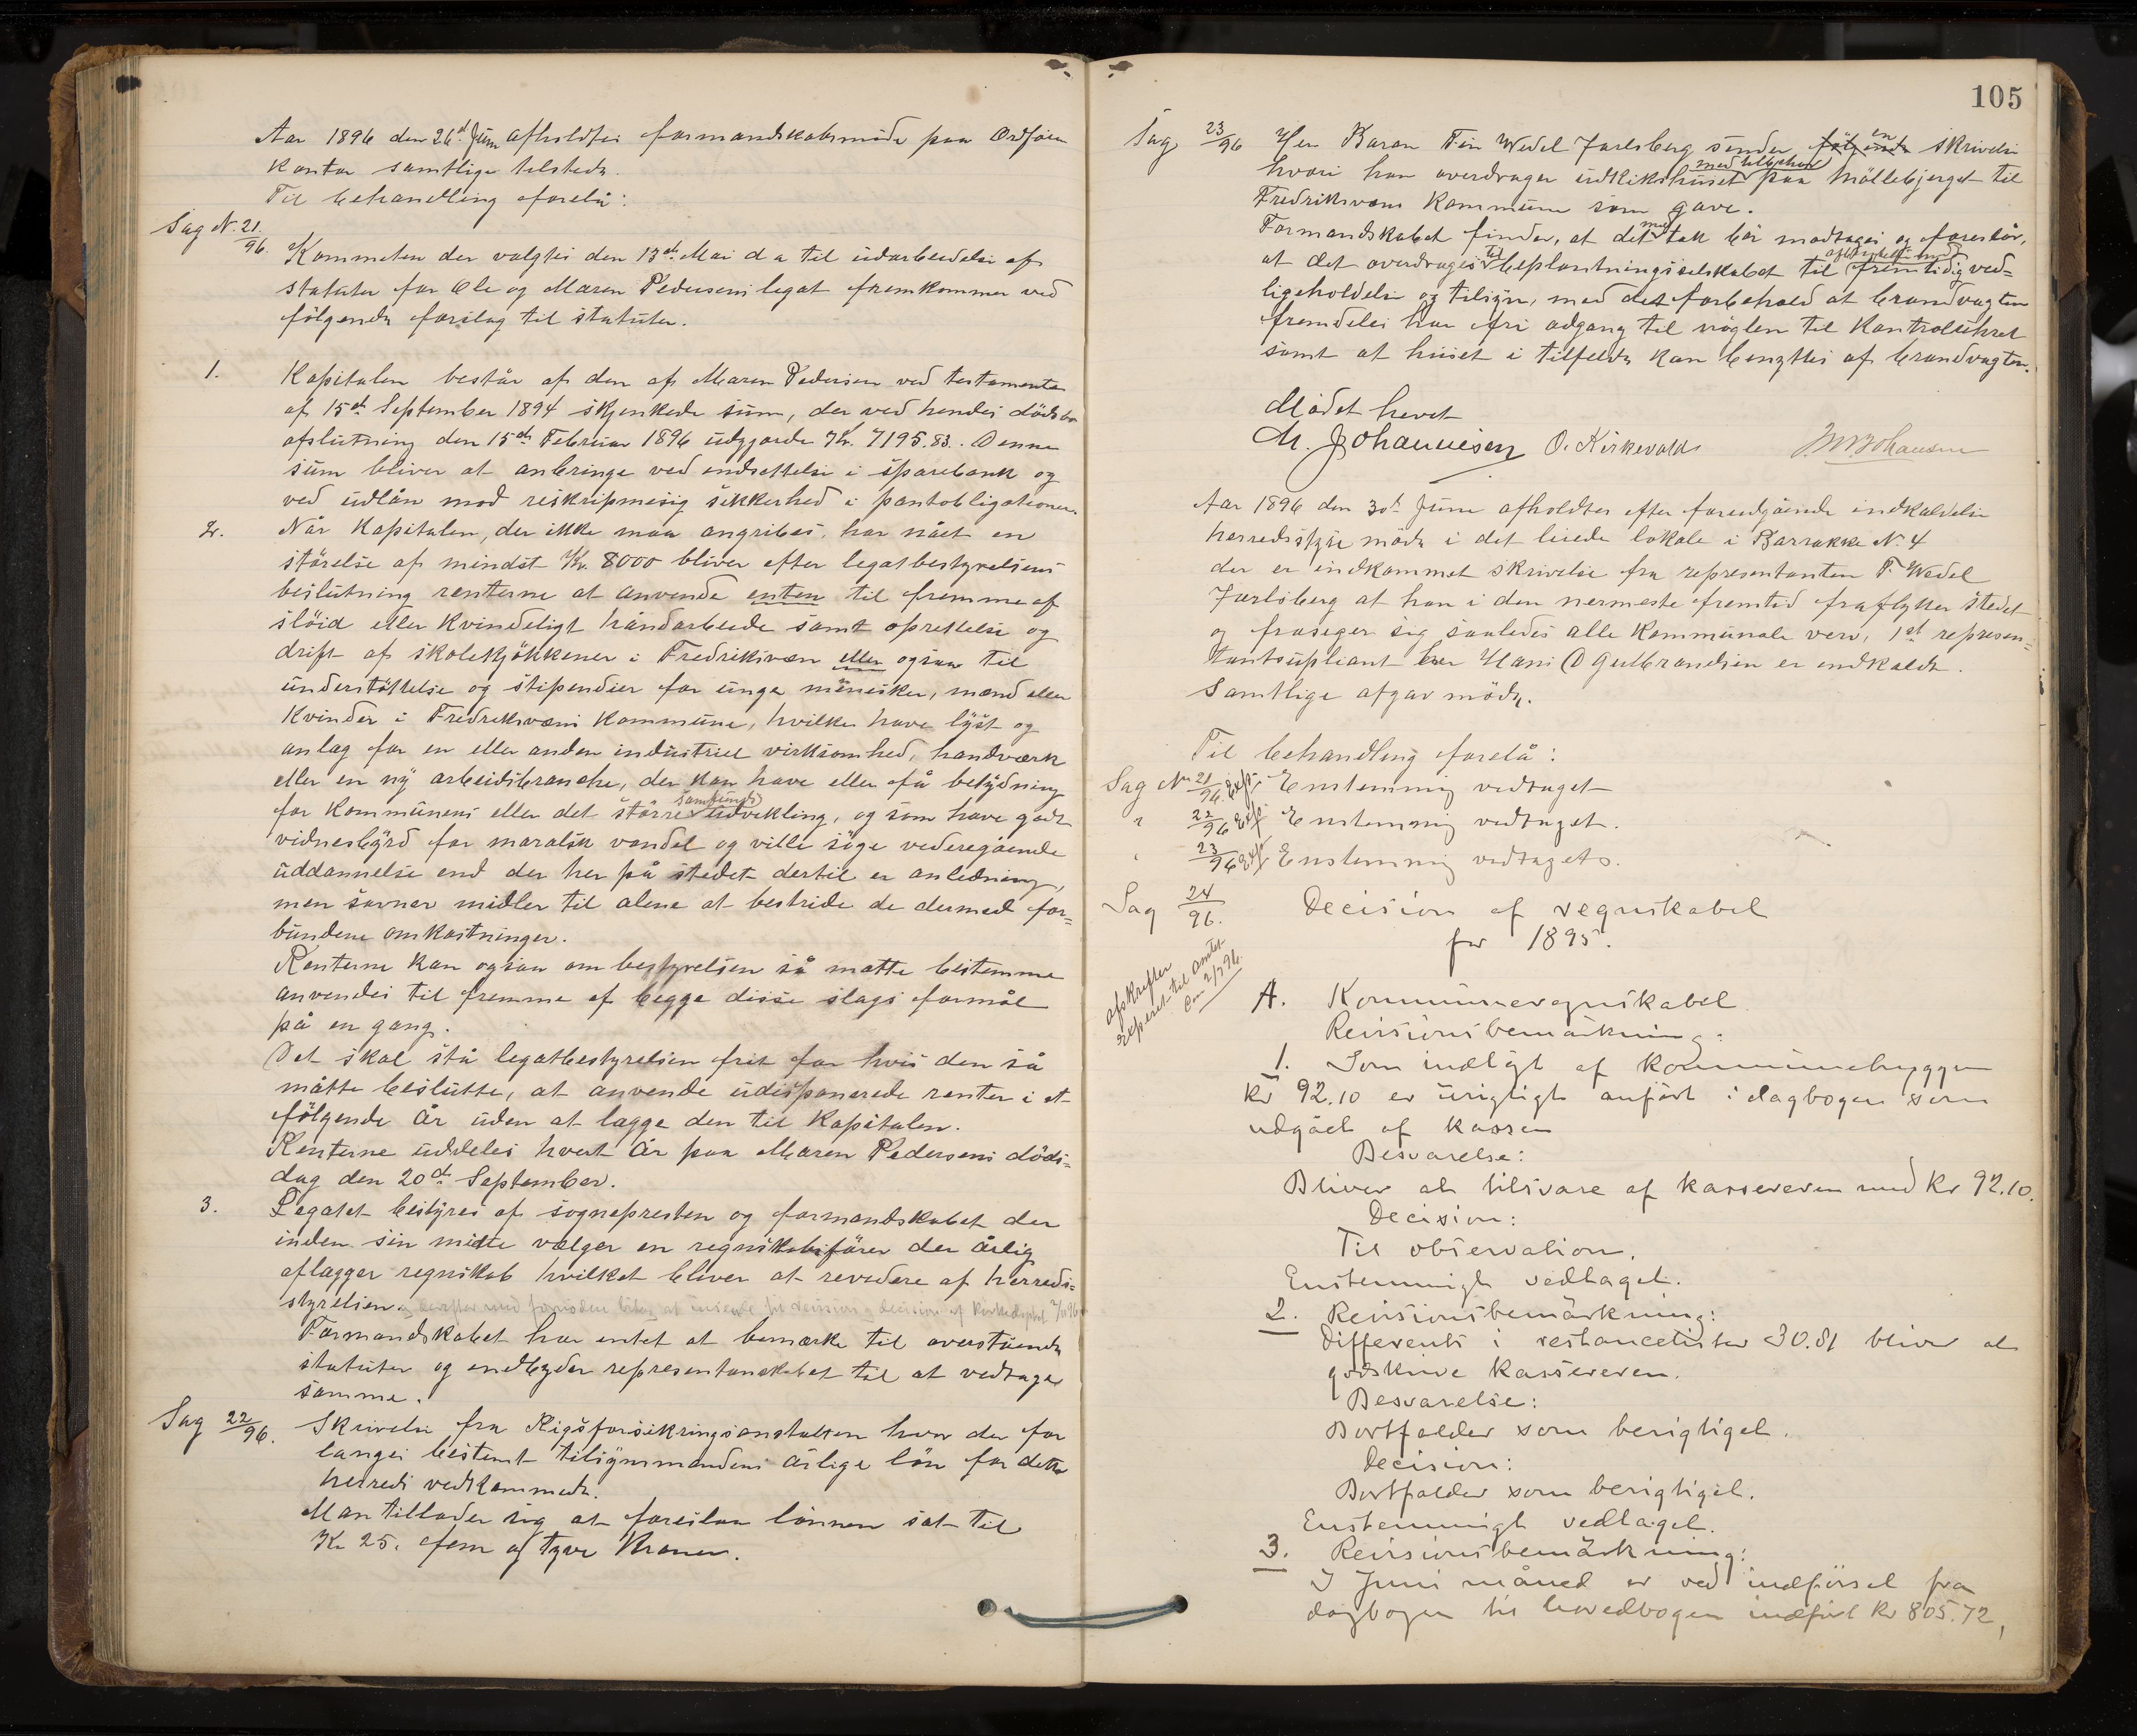 Aar 1896 den 26d Juni afholdtes formandskabsmöde paa Ordförer
kontor samtlige tilstede.
Til behandling forelå:
Sag N. 21/96. Kommeten der valgtes den 13de Mai d a til udarbeidelse af
statuter for Ole og Maren Pedersens legat fremkommer ved
fölgende forslag til statuter.
1. Kapitalen består af den af Maren Pedersen ved testamente
af 15de September 1894 skjenkede sum, der ved hendes dödsbos
afslutning den 15de Februar 1896 udgjorde Kr. 7195.83. Denne
sum bliver at anbringe ved indsettelse i sparebank og
ved udlån mod reskripmesig sikkerhed i pantobligationer.
2. Når Kapitalen, der ikke maa angribes, har nået en
störelse af mindst Kr. 8000 bliver efter legatbestyrelsens
beslutning renterne at anvende enten til fremme af
slöid eller kvindeligt håndarbeide samt oprettelse og
drift af skolekjökkener i Fredriksværn eller ogsaa til
understöttelse og stipendier for unge mennisker, mænd eller
kvinder i Fredriksværns kommune, hvilke have lyst og
anlæg for en eller anden industriel virksomhed, handværk
eller en ny arbeidsbranche, der kan have eller få betydning
for kommunens eller det större samfunds udvekling, og som have godt
vidnesbyrd for moralsk vandel og ville söge videregående
uddannelse end der her på stedet dertil er anledning,
men savner midler til alene at bestride de dermed for=
bundene omkostninger.
Renterne kan ogsaa om bestyrelsen så måtte bestemme
anvendes til fremme af begge disse slags formål
på en gang.
Det skal stå legatbestyrelsen frit for hvis den så
måtte beslutte, at anvende udisponerede renter i et
fölgende år uden at lægge den til Kapitalen.
Renterne uddeles hvert år paa Maren Pedersens döds=
dag den 20de September.
3. Legatet bestyres af sognepresten og formandskabet der
inden sin midte vælger en regnskabsförer der årlig
aflægger regnskab hvilket bliver at revedere af herreds=
styrelsen. og derefter med fornöden bilag at insende til decision
Formandskabet har intet at bemærke til overstående
statuter og indbyder representanskabet til at vedtage
samme.
Sag 22/96. Skrivelse fra Rigsforsikringsanstalten hvor der for
langes bestemt tilsynsmandens årlige lön for dette
herreds vedkommede.
Man tillader sig at foreslaa lönnen sat til
Kr 25. fem og tyve Kroner.
105
Sag 23/96 Her Baron Fin Wedel Jarlsberg sender fölgende en skrivelse
hvori han overdrager udkikshuset med telephon paa Möllebjerget til
Fredriksværns kommune som gave.
Formandskabet finder, at det med tak bör modtages og foreslår,
at det overdrages til beplantningsselskabet til fremtidig ved=
ligeholdelse og tilsyn, med det forbehold at brandvagten
fremdeles har fri adgang til nöglen til Kontroluhret
samt at huset i tilfelde kan benyttes af brandvagten.
Mödet hevet
M. Johannesen O. Kirkevold J M Johansen
Aar 1896 den 30d Juni afholdtes efter foreudgående indkaldelse
herredsstyre möde i det leiede lokale i Barrakke N. 4
der er indkommet skrivelse fra representanten F. Wedel
Jarlsberg at han i den nermeste fremtid fraflytter stedet
og frasiger sig saaledes alle kommunale verv, 1st represen=
tantsupliant herr Hans O Gulbrandsen er indkaldt.
Samtlige afgav möde.
Til behandling forelå:
Sag Nr 21/96. Exp. Enstemmig vedtaget
" 22/96 Exp Enstemmig vedtaget.
" 23/96 Exp Enstemmig vedtaget.
Sag 24/96. Decision af regnskabet
for 1895.
afskrifter
experet til amtet
den 2/7 96.
A. Kommuneregnskabet
Revisionsbemärkning:
1. Som indlägt af kommunebryggen
kr 92.10 er urigtigt anfört i dagbogen som
udgået af kassen
Besvarelse:
Bliver at tilsvare af kassereren med kr 92.10.
Decision:
Til observation.
Enstemmigt vedtaget.
2. Revisionsbemärkning:
Differents i restancelister 30.81 bliver at
godskrive kassereren.
Besvarelse:
Bortfalder som berigtiget.
Decision:
Bortfalder som berigtiget.
Enstemmigt vedtaget.
3. Revisionsbemärkning:
I Juni måned er ved indförsel fra
dagbogen til hovedbogen indfört kr 805.72,